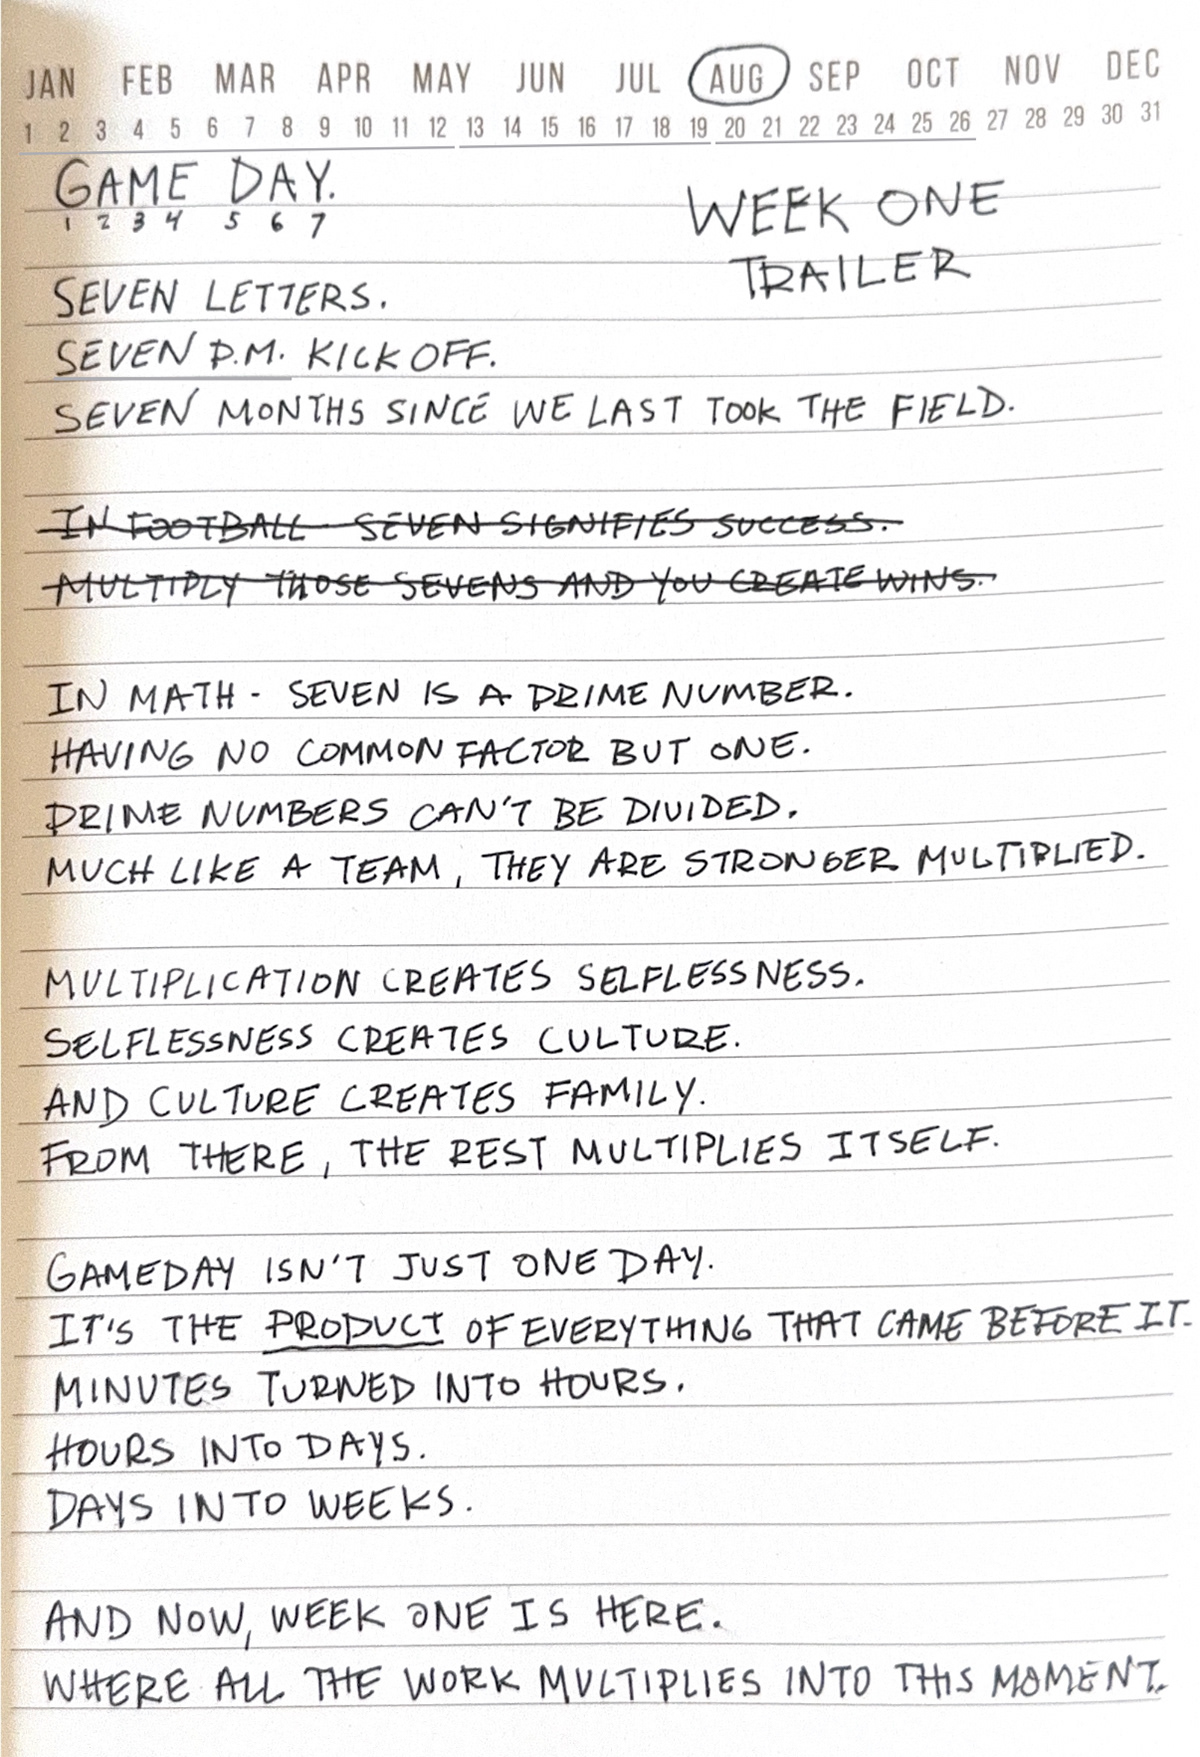 JAN FEB MAR APR MAY JUN JUL AUG SEP OCT NOV DEC
1 2 3 4 5 6 7 8 9 10 11 12 13 14 15 16 17 18 19 20 21 22 23 24 25 26 27 28 29 30 31
GAME DAY.
1 2 3 4 5 6 7
WEEK ONE
TRAILER
SEVEN LETTERS.
SEVEN P.M. KICKOFF.
SEVEN MONTHS SINCE WE LAST TOOK THE FIELD.
IN FOOTBALL - SEVEN SIGNIFIES SUCCESS.
MULTIPLY THOSE SEVENS AND YOU CREATE WINS.
IN MATH - SEVEN IS A PRIME NUMBER.
HAVING NO COMMON FACTOR BUT ONE.
PRIME NUMBERS CAN'T BE DIVIDED.
MUCH LIKE A TEAM, THEY ARE STRONGER MULTIPLIED.
MULTIPLICATION CREATES SELFLESSNESS.
SELFLESSNESS CREATES CULTURE.
AND CULTURE CREATES FAMILY.
FROM THERE, THE REST MULTIPLIES ITSELF.
GAMEDAY ISN'T JUST ONE DAY.
IT'S THE PRODUCT OF EVERYTHING THAT CAME BEFORE IT.
MINUTES TURNED INTO HOURS.
HOURS INTO DAYS.
DAYS INTO WEEKS.
AND NOW, WEEK ONE IS HERE.
WHERE ALL THE WORK MULTIPLIES INTO THIS MOMENT.